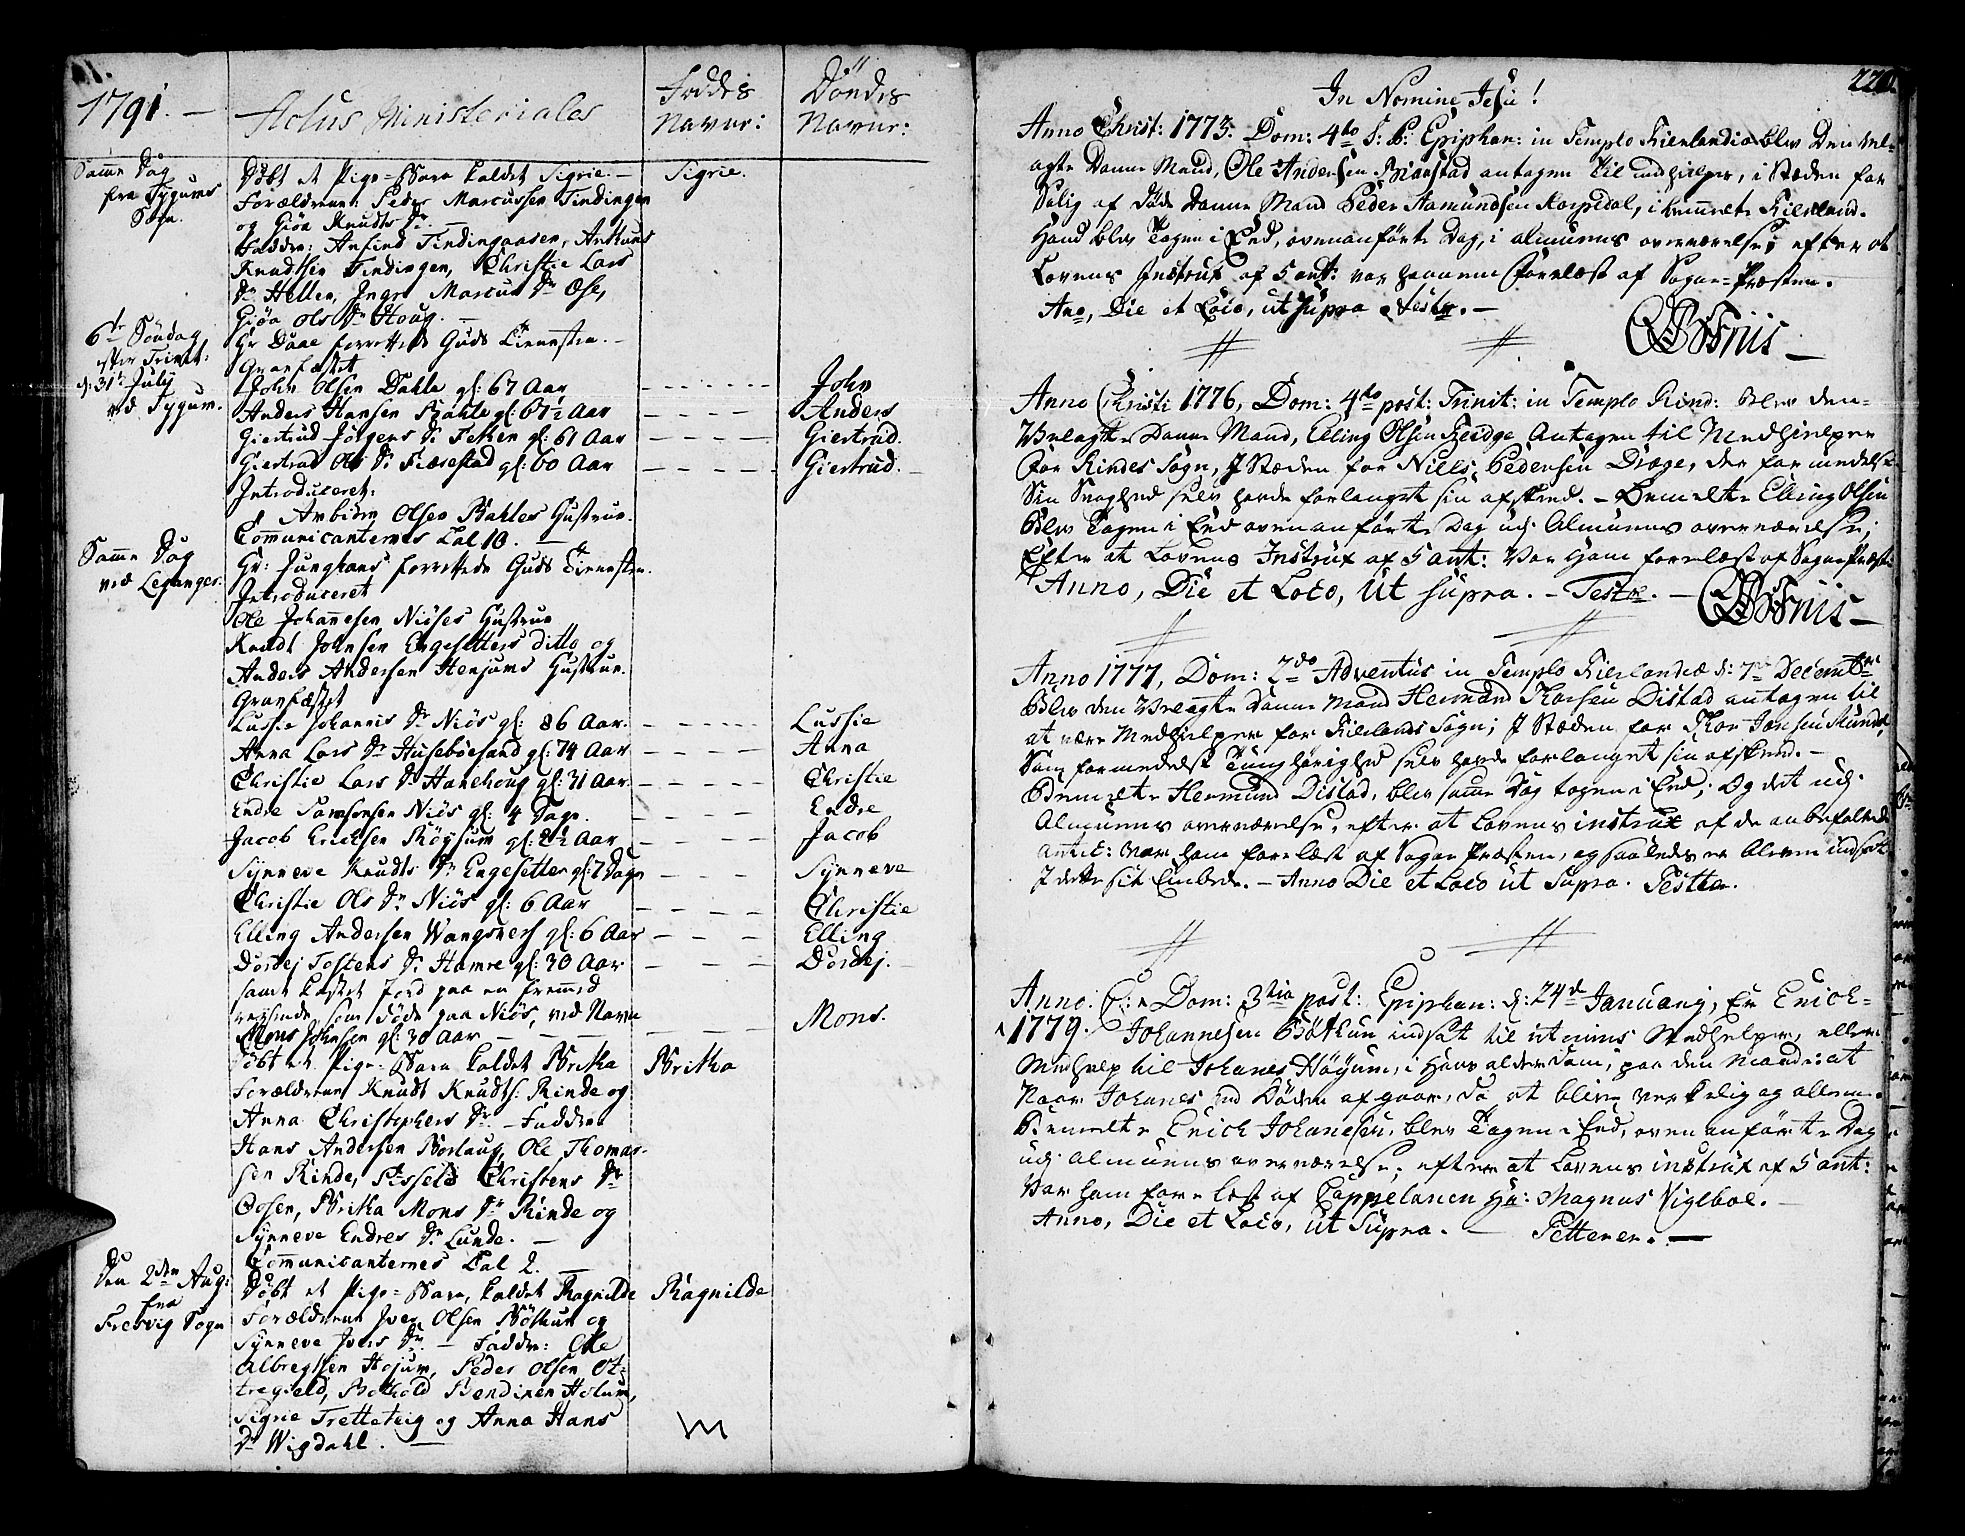 1791. —
Actus Ministeriales
Føddes
Navne:
Dödes
Navne:
Samme Dag
fra Tygums
Sogn.
Døbt et Pige-Barn kaldet Sigrie. —
Sigrie.
Forældrene: Peder Marcussen Tindingen
og Giöa Knudts Dr. —
Faddere: Anfind Tindingaasen,
Knudtsen Tindingen, Christie Lars
Dr Hellen, Inger Marcus Dr Ose,
Giöa Ols Dr Houg. —
6te Søndag
efter Trinit:
d: 31te July
ved Tygum.
Hr Daae forrettede Guds Tienesten. —
Gravfæstet
John Olsen Dahle gl: 67 Aar
John
Anders Hansen Bahle gl: 67½ Aar
Anders
Giertrud Jörgens Dr Feken gl: 61 Aar
Giertrud.
Giertrud Ols Dr Fierestad gl: 60 Aar
Giertrud. —
Introduceret:
Anbiörn Olsen Bahles Hustrue.
Communicanternes Tal 10. —
Samme Dag
ved Leganger.
Hr: Junghans forrettede Guds Tienesten.
Introduceret
Ole Johannesen Niöses Hustrue
Knudt Johnsen Engesetters ditto og
Anders Andersen Henjums Hustrue.
Gravfæstet
Lussie Johannis Dr Niös gl: 86 Aar.
Lussie
Anna Lars Dr Huseböesand gl: 74 Aar
Anna
Christie Lars Dr Hanehoug gl: 31 Aar
Christie
Endre Samsonsen Niös gl: 4 Dage.
Endre
Jacob Ericksen Röysum gl: 2½ Aar
Jacob
Synneve Knudts Dr Engesetter gl: 7 Dage
Synneve
Christie Ols Dr Niös gl: 6 Aar
Christie
Elling Andersen Wangsness gl: 6 Aar
Elling
Dordej Tostens Dr Hamre gl: 30 Aar
Dordej. —
samt kastet Jord paa en fremmed
reysende, som døde paa Niös, ved Navn
Mons Johnsen gl: 30 Aar — — —
Mons.
Döbt et Pige-Barn kaldet Britha
Britha
Forældrene Knudt Knudts: Rinde og
Anna Christophers Dr. — Faddere
Hans Andersen Borlaug, Ole Thomas-
sen Rinde, Sisselè Christens Dr
Cosen, Britha Mons Dr Rinde og
Synneve Endres Dr Lunde. —
Communicanternes Tal 2. —
Den 2den Aug:
fra
Fresvig Sogn
Døbt et Pige-Barn, kaldet Ragnilde
Ragnilde
Forældrene Iver Olsen Böthun og
Synneve Ivers Dr. — Faddere: Ole
Albregtsen Hojum, Peder Olsen Ot-
tregield, Bothold Bendixen Holum,
Sigrie Tretteteig og Anna Hans
Dr Wigdahl. —
22
In Nomine Jesu!
Anno Christ: 1773. Dom: 4to p: Epiphan: in Templo Tienlandiæ blev Den Vel-
agte Danne Mand, Ole Andersen Brimstad antagen til Medhielper, i Stæden for
Salig af døde Danne Mand Peder Aamundsen Hospital, i bemelte Fierland.
Hand blev tagen i Eed, ovenanførte Dag, i almuens overværelse; efter at
Lovens Instrux af 5 art: var hannem forelæst af Sogne-Præsten.
Ano, Die et Loco, ut supra Testor. —
CBFriis —
Anno Christi 1776, Dom: 4to post: Trinit: in Templo Rind: blev den
Velagte Danne Mand, Elling Olsen Antagen til Medhielper
for Rindes Sogn, I Stæden for Niels Pedersen Dræge, der formedelst
Sin Svaghed selv havde forlanget sin afskeed. — Bemelte Elling Olsen
blev Tagen i Eed ovenanførte Dag udi Almuens overværelse;
Efter at Lovens Instrux af 5 art: Var ham forelæst af SognePræst.
Anno, Die et Loco, ut supra. — Testor. —
CBFriis —
Anno 1777, Dom: 2do Adventus in Templo Fierlandiæ d: 7de Decembr:
blev den Velagte Danne Mand Hermund Torsen Distad antagen til
at være Medhielper for Fierlands Sogn; I Stæden for Thor Jonsen Mundal,
Som formedelst Tunghørighed selv havde forlanget sin afskeed. —
Bemelte Hermund Distad, blev samme Dag tagen i Eed; Og det udi
Almuens overværelse, efter at Lovens instrux af de anbefalede
Articl: var ham forelæst af Sogne Præsten, og saaledes er bleven indsat
I dette sit Embede. — Anno Die et Loco ut Supra. Testter.
Anno. C: Dom: 3tia post: Epiphan: d: 24de Januarij, Er Erich
1779. Johannesen Böthun indsat til at være Medhielper, eller
Medhielp til Johanes Höyum, i Hans alderdom, paa den Maade: at
Naar Johanes ved Döden afgaar, da at blive verkelig og alleene.
Bemelte Erich Johanesen, blev Tagen i Eed, ovenanførte Dag
udi Almuens overværelse; efter at Lovens instrux af 5 art:
Var ham forelæst af Cappelanen Hr: Magnus Nigleboe. —
Anno, Die et Loco, ut Supra. — Testteres. —